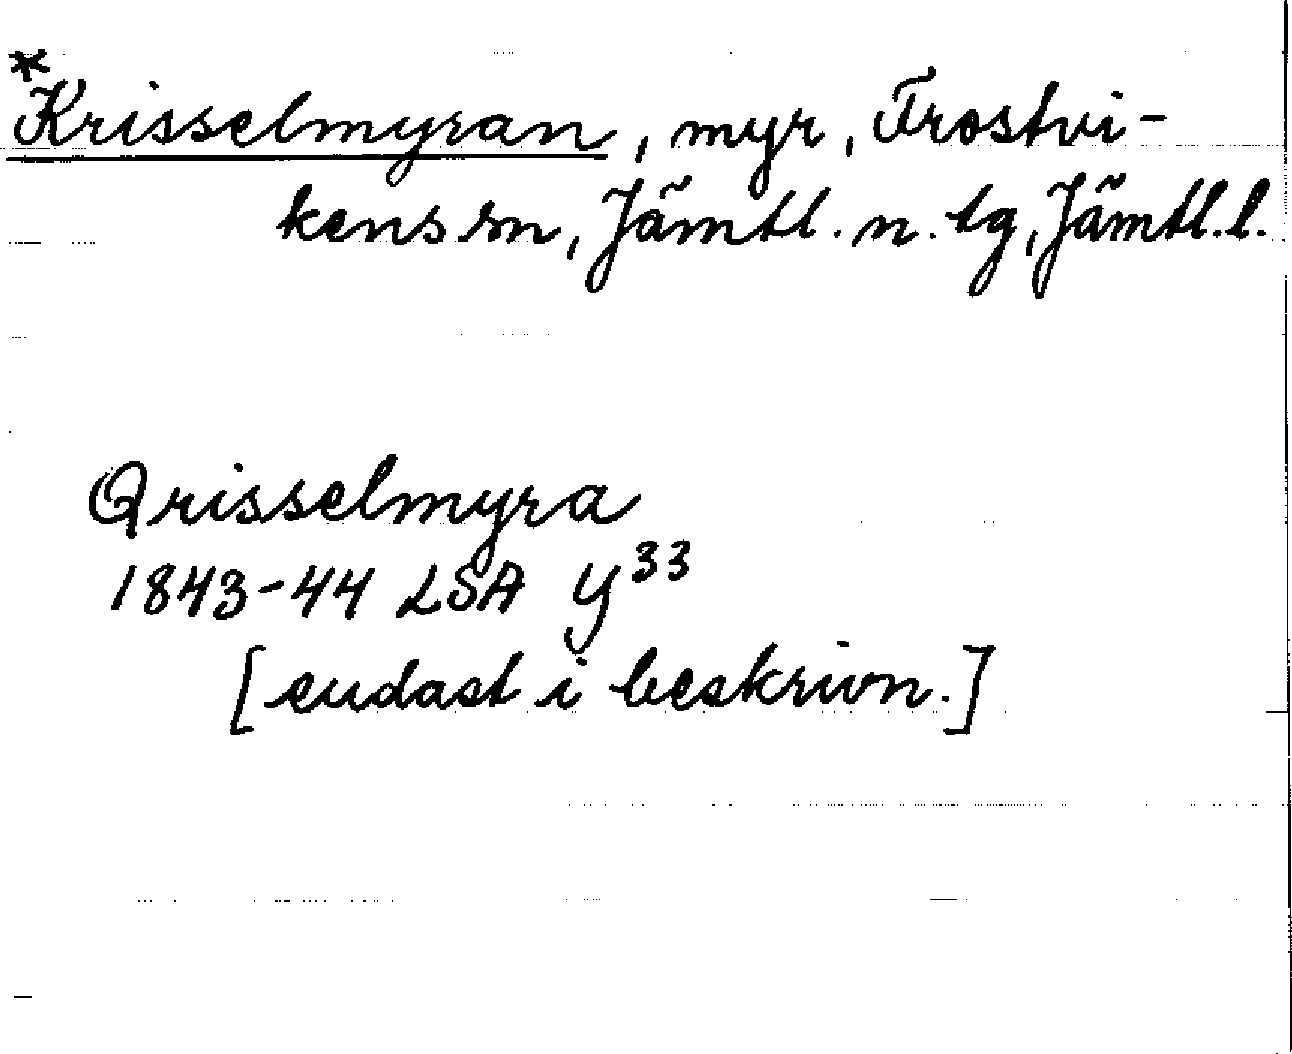 *Krisselmyran, myr, Frostvi-
kens sn, Jämtl. n. tg, Jämtl. l.
Qrisselmyra
1843-44 LSA Y³³
[endast i beskrivn.]